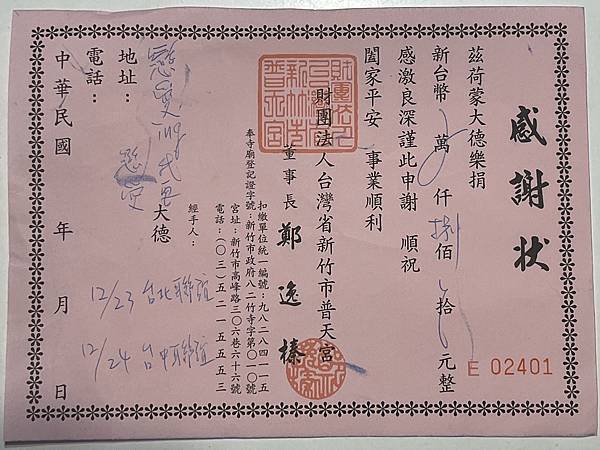 感謝狀
茲荷蒙大德樂捐
新台幣 萬 仟 捌佰 拾 元整
感激良深謹此申謝 順祝
闔家平安 事業順利
財團法人台灣省新竹市普天宮
董事長 鄭逸榛
奉寺廟登記證字號：新竹市政府八二竹寺字第０１０號
扣繳單位統一編號：九八二八四一一五
宮址：新竹市高峰路三０六巷六十六號
電話：(０三)五二一五五五三
經手人：
大德
地址：
電話：
中華民國 年 月 日
12/23 台北聯誼
12/24 台中聯誼
E 02401